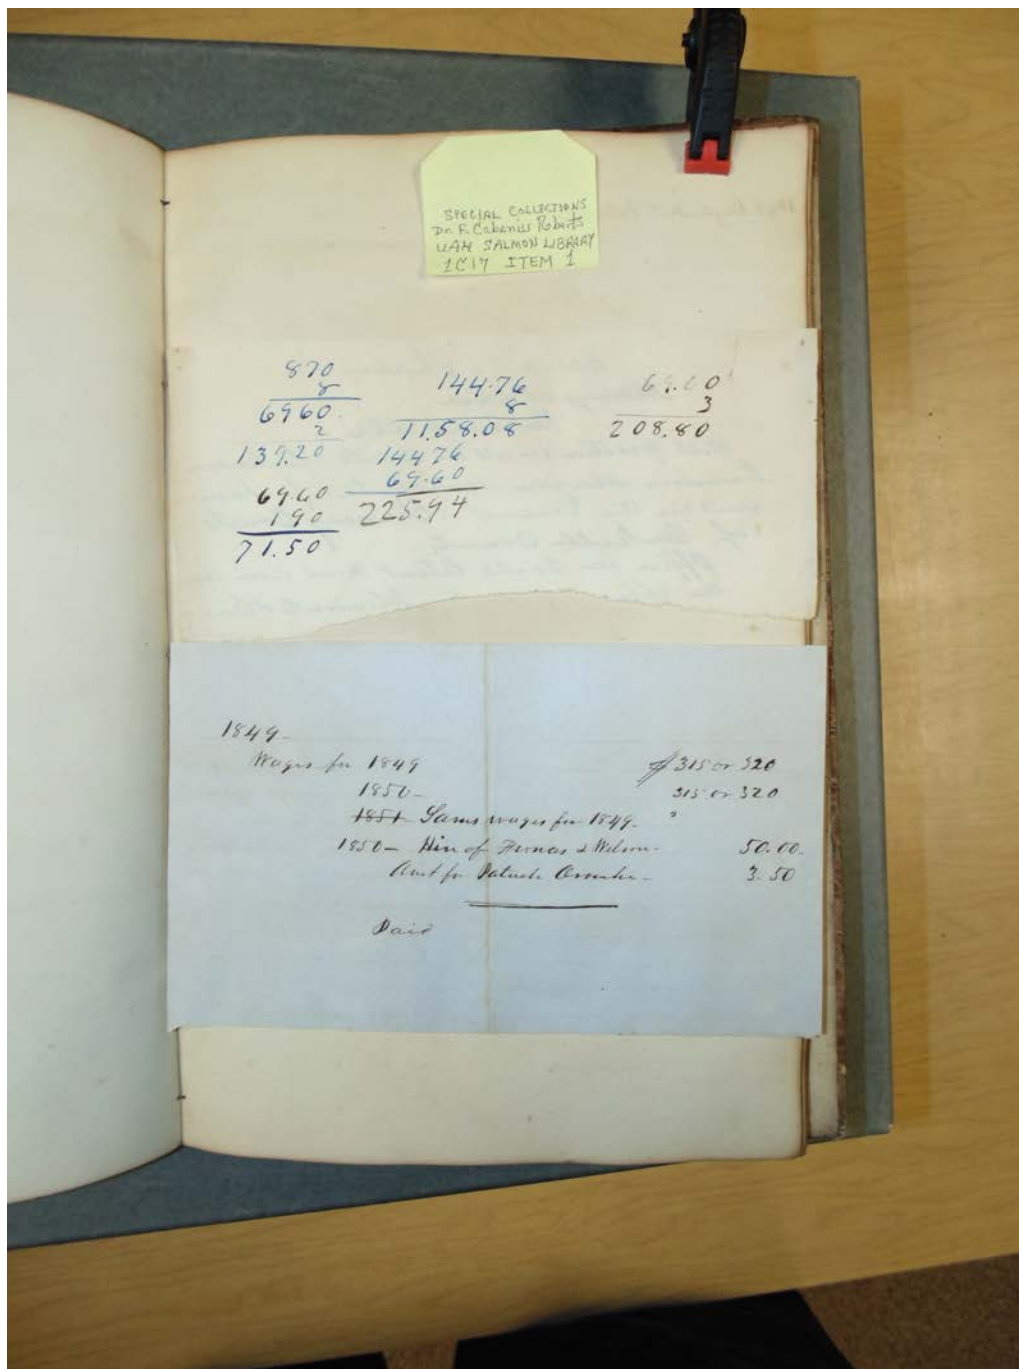 SPECIAL COLLECTIONS
Dr. F. Cabaniss Roberts
UAH SALMON LIBRARY
1C17 ITEM 1
870
8
6960.
2
139.20
69.60
190
71.50
144.76
8
1158.08
14476
69.60
225.94
69.60
3
208.80
1849-
Wages for 1849 $ 315 or 320
1850- 315 or 320
1851- Sams wages for 1849. "
1850- Hire of & Wilson- 50.00.
Amt for - 3.50
Paid